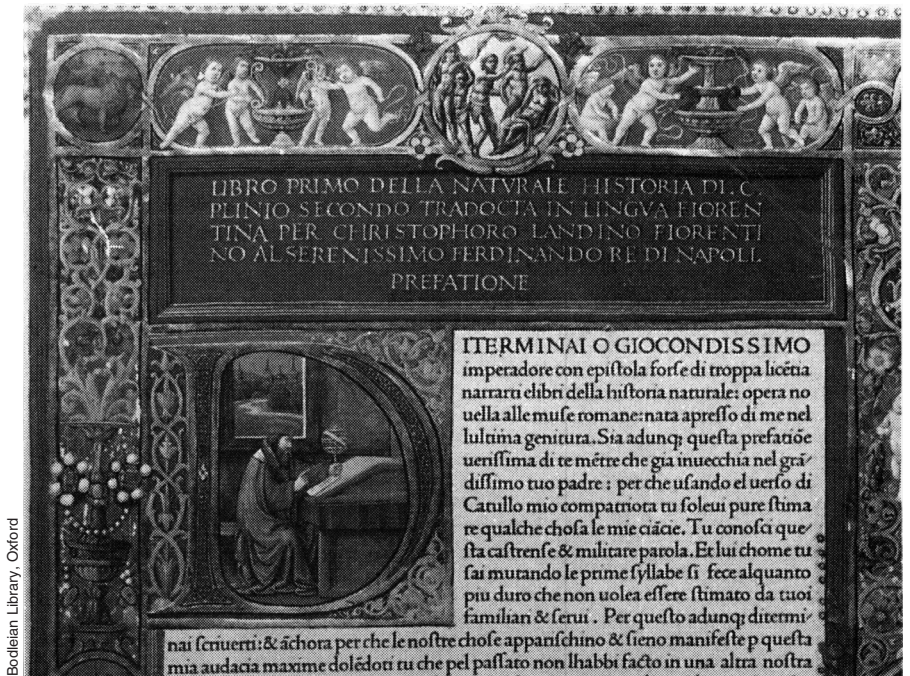 LIBRO PRIMO DELLA NATVRALE HISTORIA DI. C.
PLINIO SECONDO TRADOCTA IN LINGVA FIOREN
TINA PER CHRISTOPHORO LANDINO FIORENTI
NO AL SERENISSIMO FERDINANDO RE DI NAPOLI.
PREFATIONE
DITERMINAI O GIOCONDISSIMO
imperadore con epiſtola forſe di troppa licẽtia
narrarti elibri della hiſtoria naturale: opera no
uella alle muſe romane: nata apreſſo di me nel
lultima genitura. Sia adunq; queſta prefatiõe
ueriſſima di te mẽtre che gia inuecchia nel grã/
diſſimo tuo padre : per che uſando el uerſo di
Catullo mio compatriota tu ſoleui pure ſtima
re qualche choſa le mie ciãcie. Tu conoſci que/
ſta caſtrenſe & militare parola. Et lui chome tu
ſai mutando le prime ſyllabe ſi fece alquanto
piu duro che non uolea eſſere ſtimato da tuoi
familiari & ſerui . Per queſto adunq; ditermi/
nai ſcriuerti: & ãchora per che le noſtre choſe appariſchino & ſieno manifeſte p queſta
mia audacia maxime dolẽdoti tu che pel paſſato non lhabbi facto in una altra noſtra
Bodleian Library, Oxford